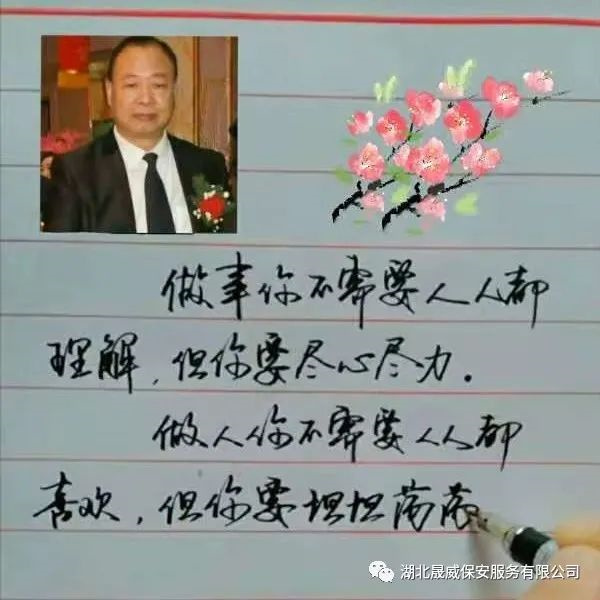 做事你不需要人人都
理解，但你要尽心尽力。
做人你不需要人人都
喜欢，但你要坦坦荡荡。
湖北晟威保安服务有限公司